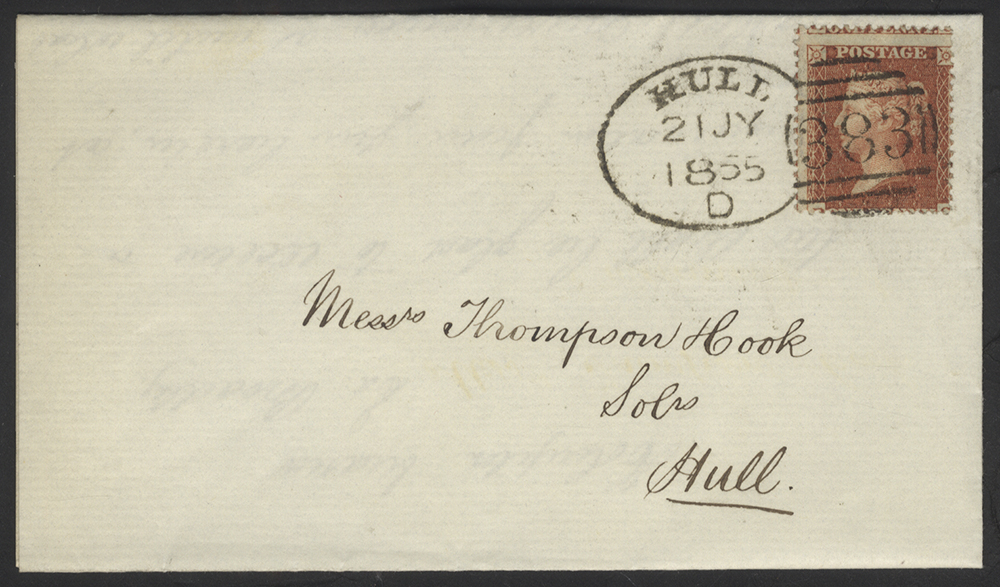 HULL
21 JY
1855
D
POSTAGE
383
Messrs Thompson Hook
Solrs
Hull.